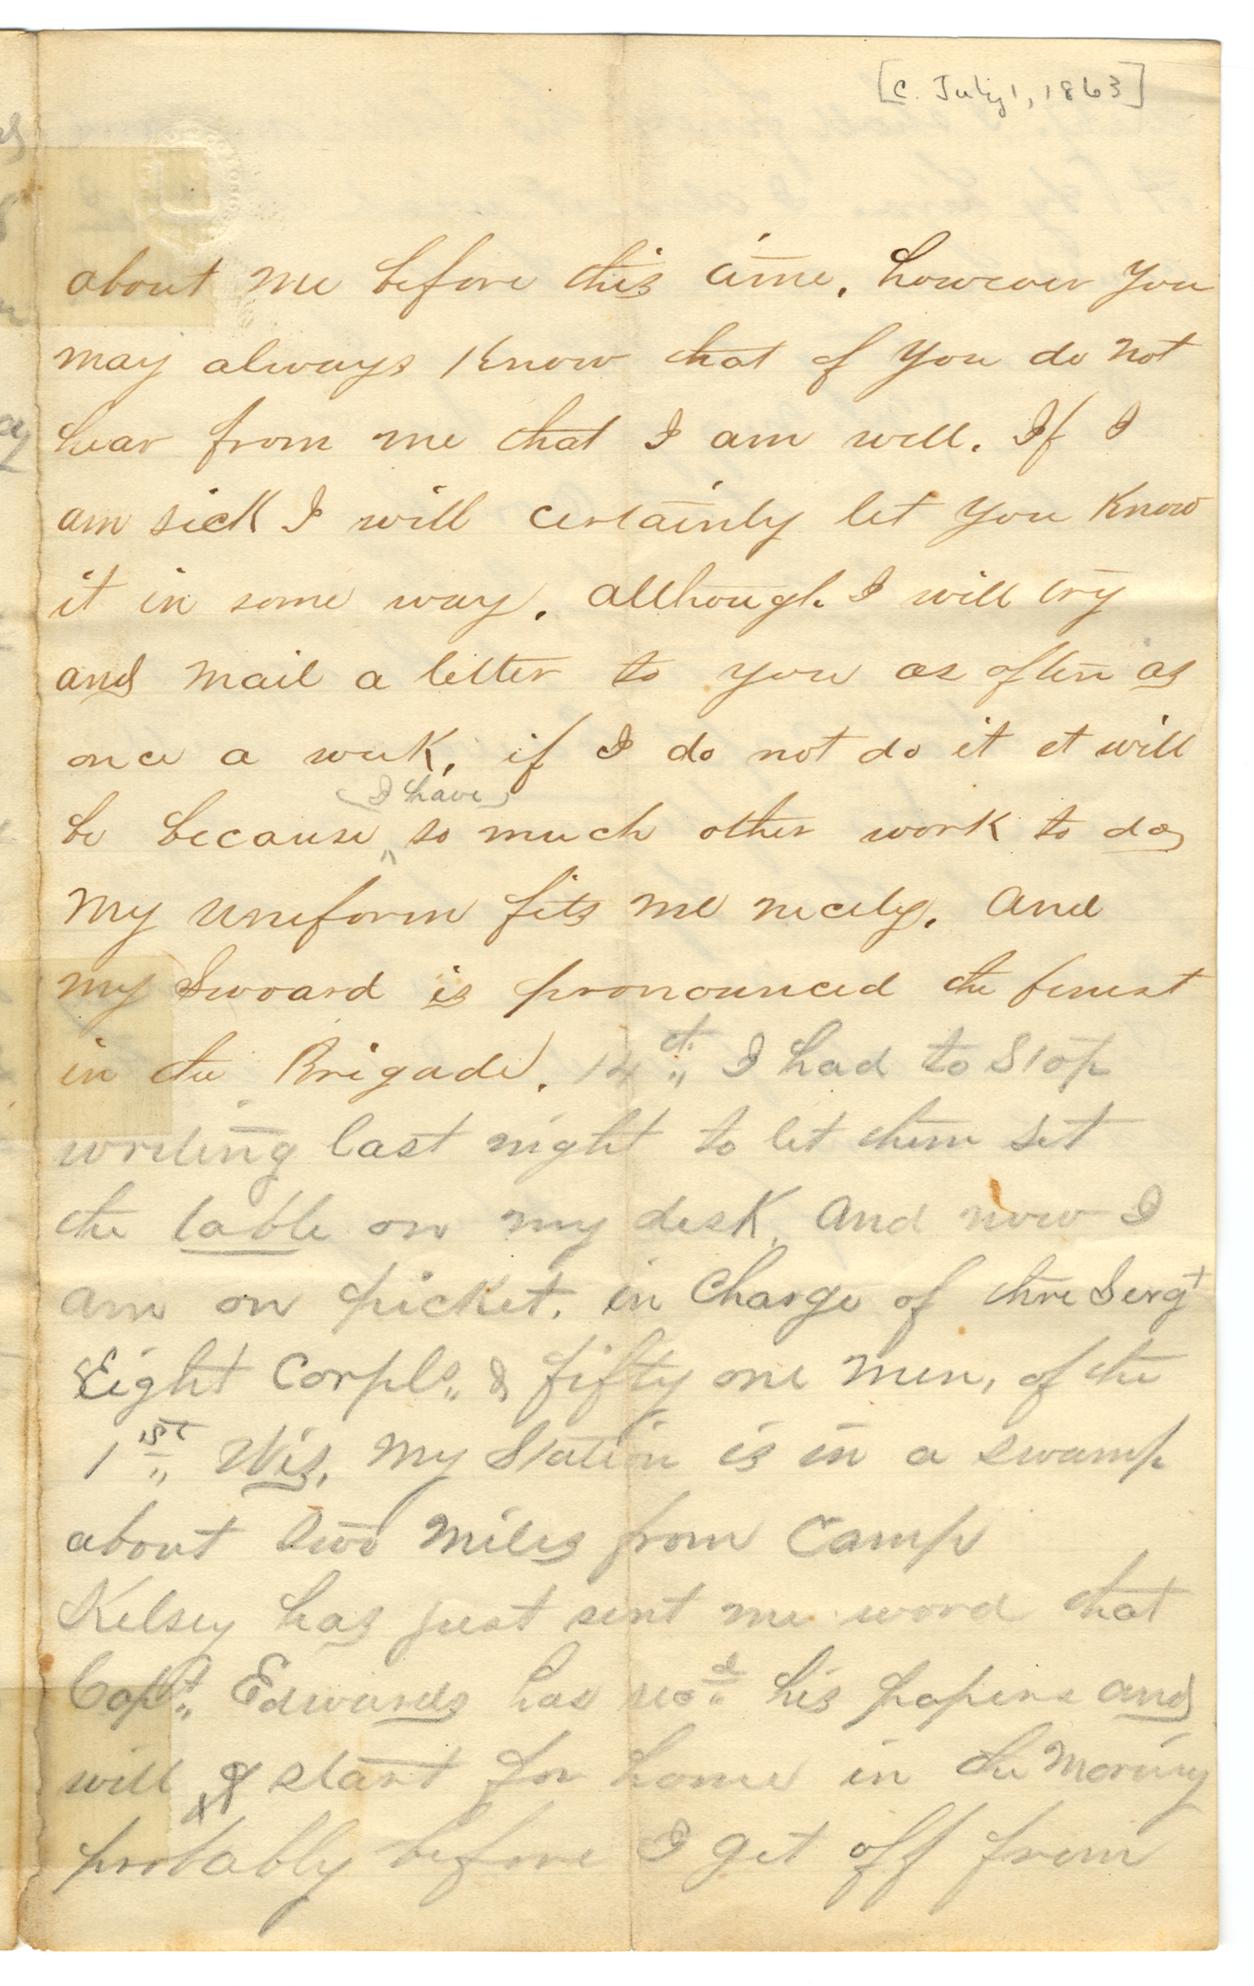 [c. July 1, 1863]
about me before this time. however you
may always know that if you do not
hear from me that I am well. If I
am sick I will certainly let you know
it in some way. although I will try
and mail a letter to you as often as
once a week, if I do not do it it will
(I have)
be because so much other work to do,
My uniform fits me nicely. And
my Swoard is pronounced the finest
in the Brigade. 14th I had to Stop
writing last night to let them set
the table on my desk, And now I
am on picket. in Charge of thre Sergt
Eight Corpls. & fifty one men, of the
1st Wis. My Station is in a swamp
about two miles from Camp
Kelsey has just sent me word that
Capt. Edwards has recd his papers and
will start for home in the Morning
probably before I get off from